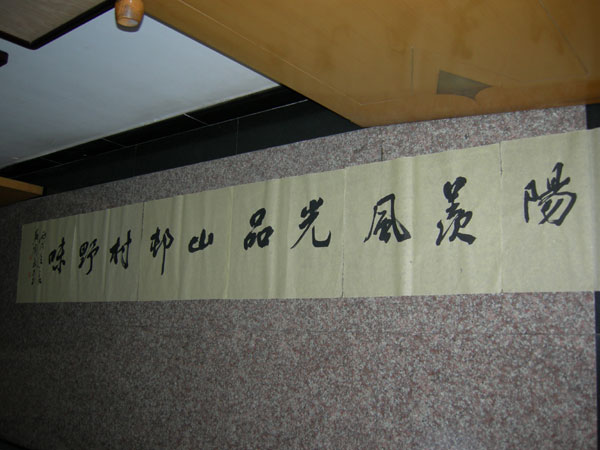 陽羨風光品山邨村野味